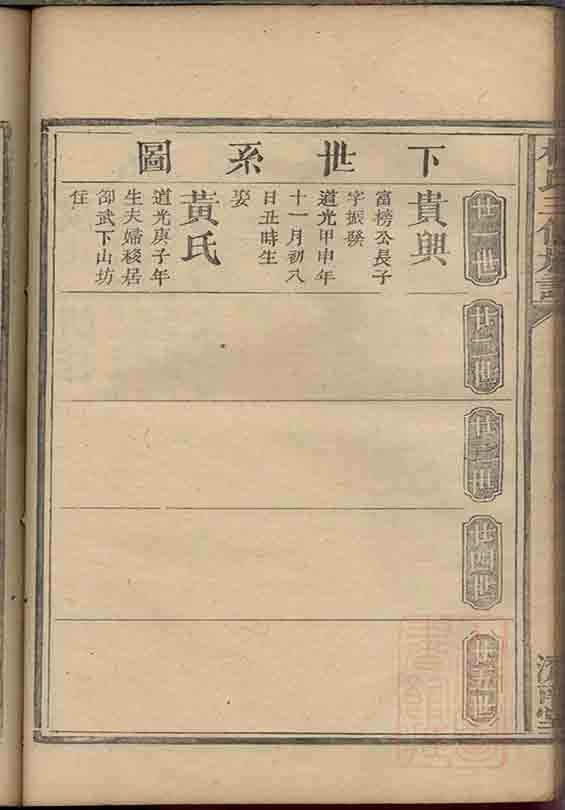 下世系圖
廿一世
貴興
富榜公長子
字振發
道光甲申年
十一月初八
日丑時生
娶
黃氏
道光庚子年
生夫婦移居
邵武下山坊
住
廿二世
廿三世
廿四世
廿五世